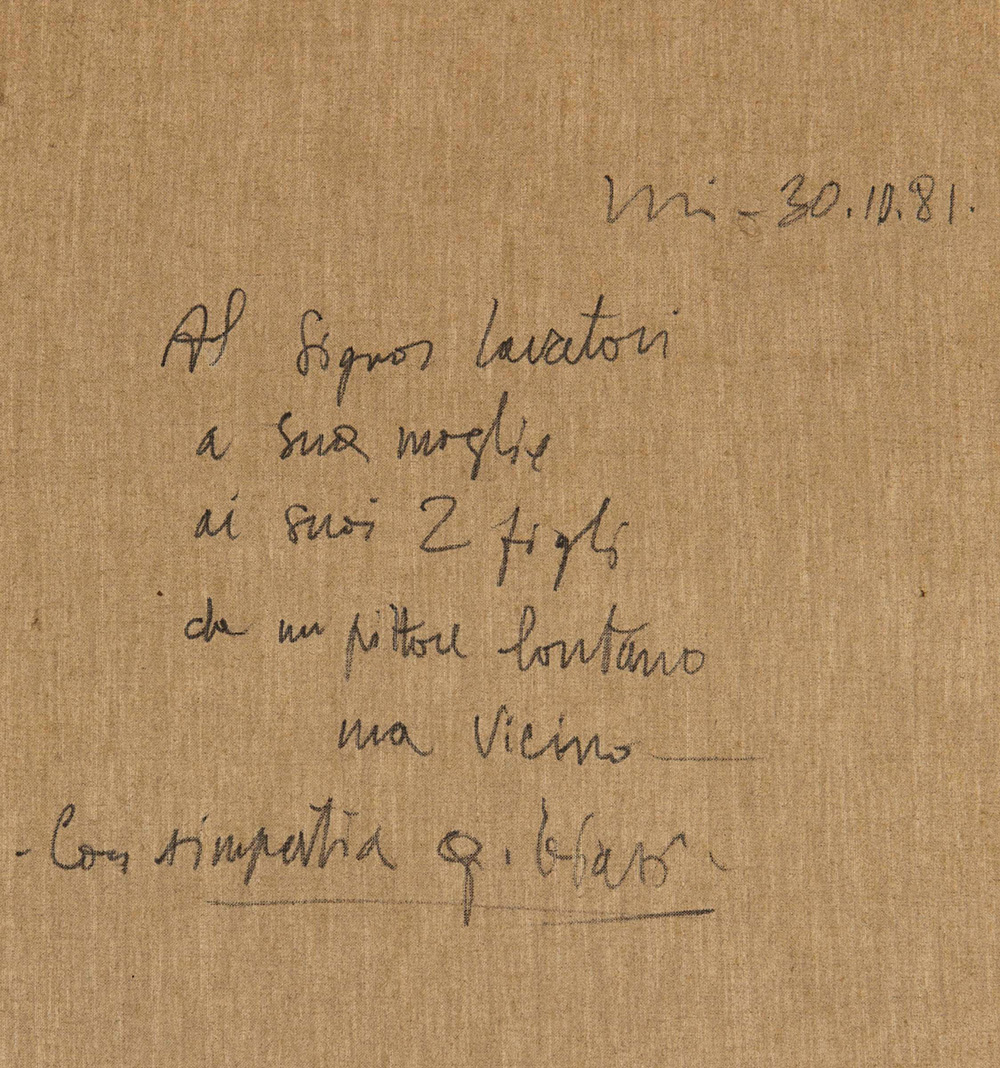 Mi - 30.10.81.
Al Signor Lavatori
a sua moglie
ai suoi 2 figli
da un pittore lontano
ma vicino
- Con simpatia G. Biasi -